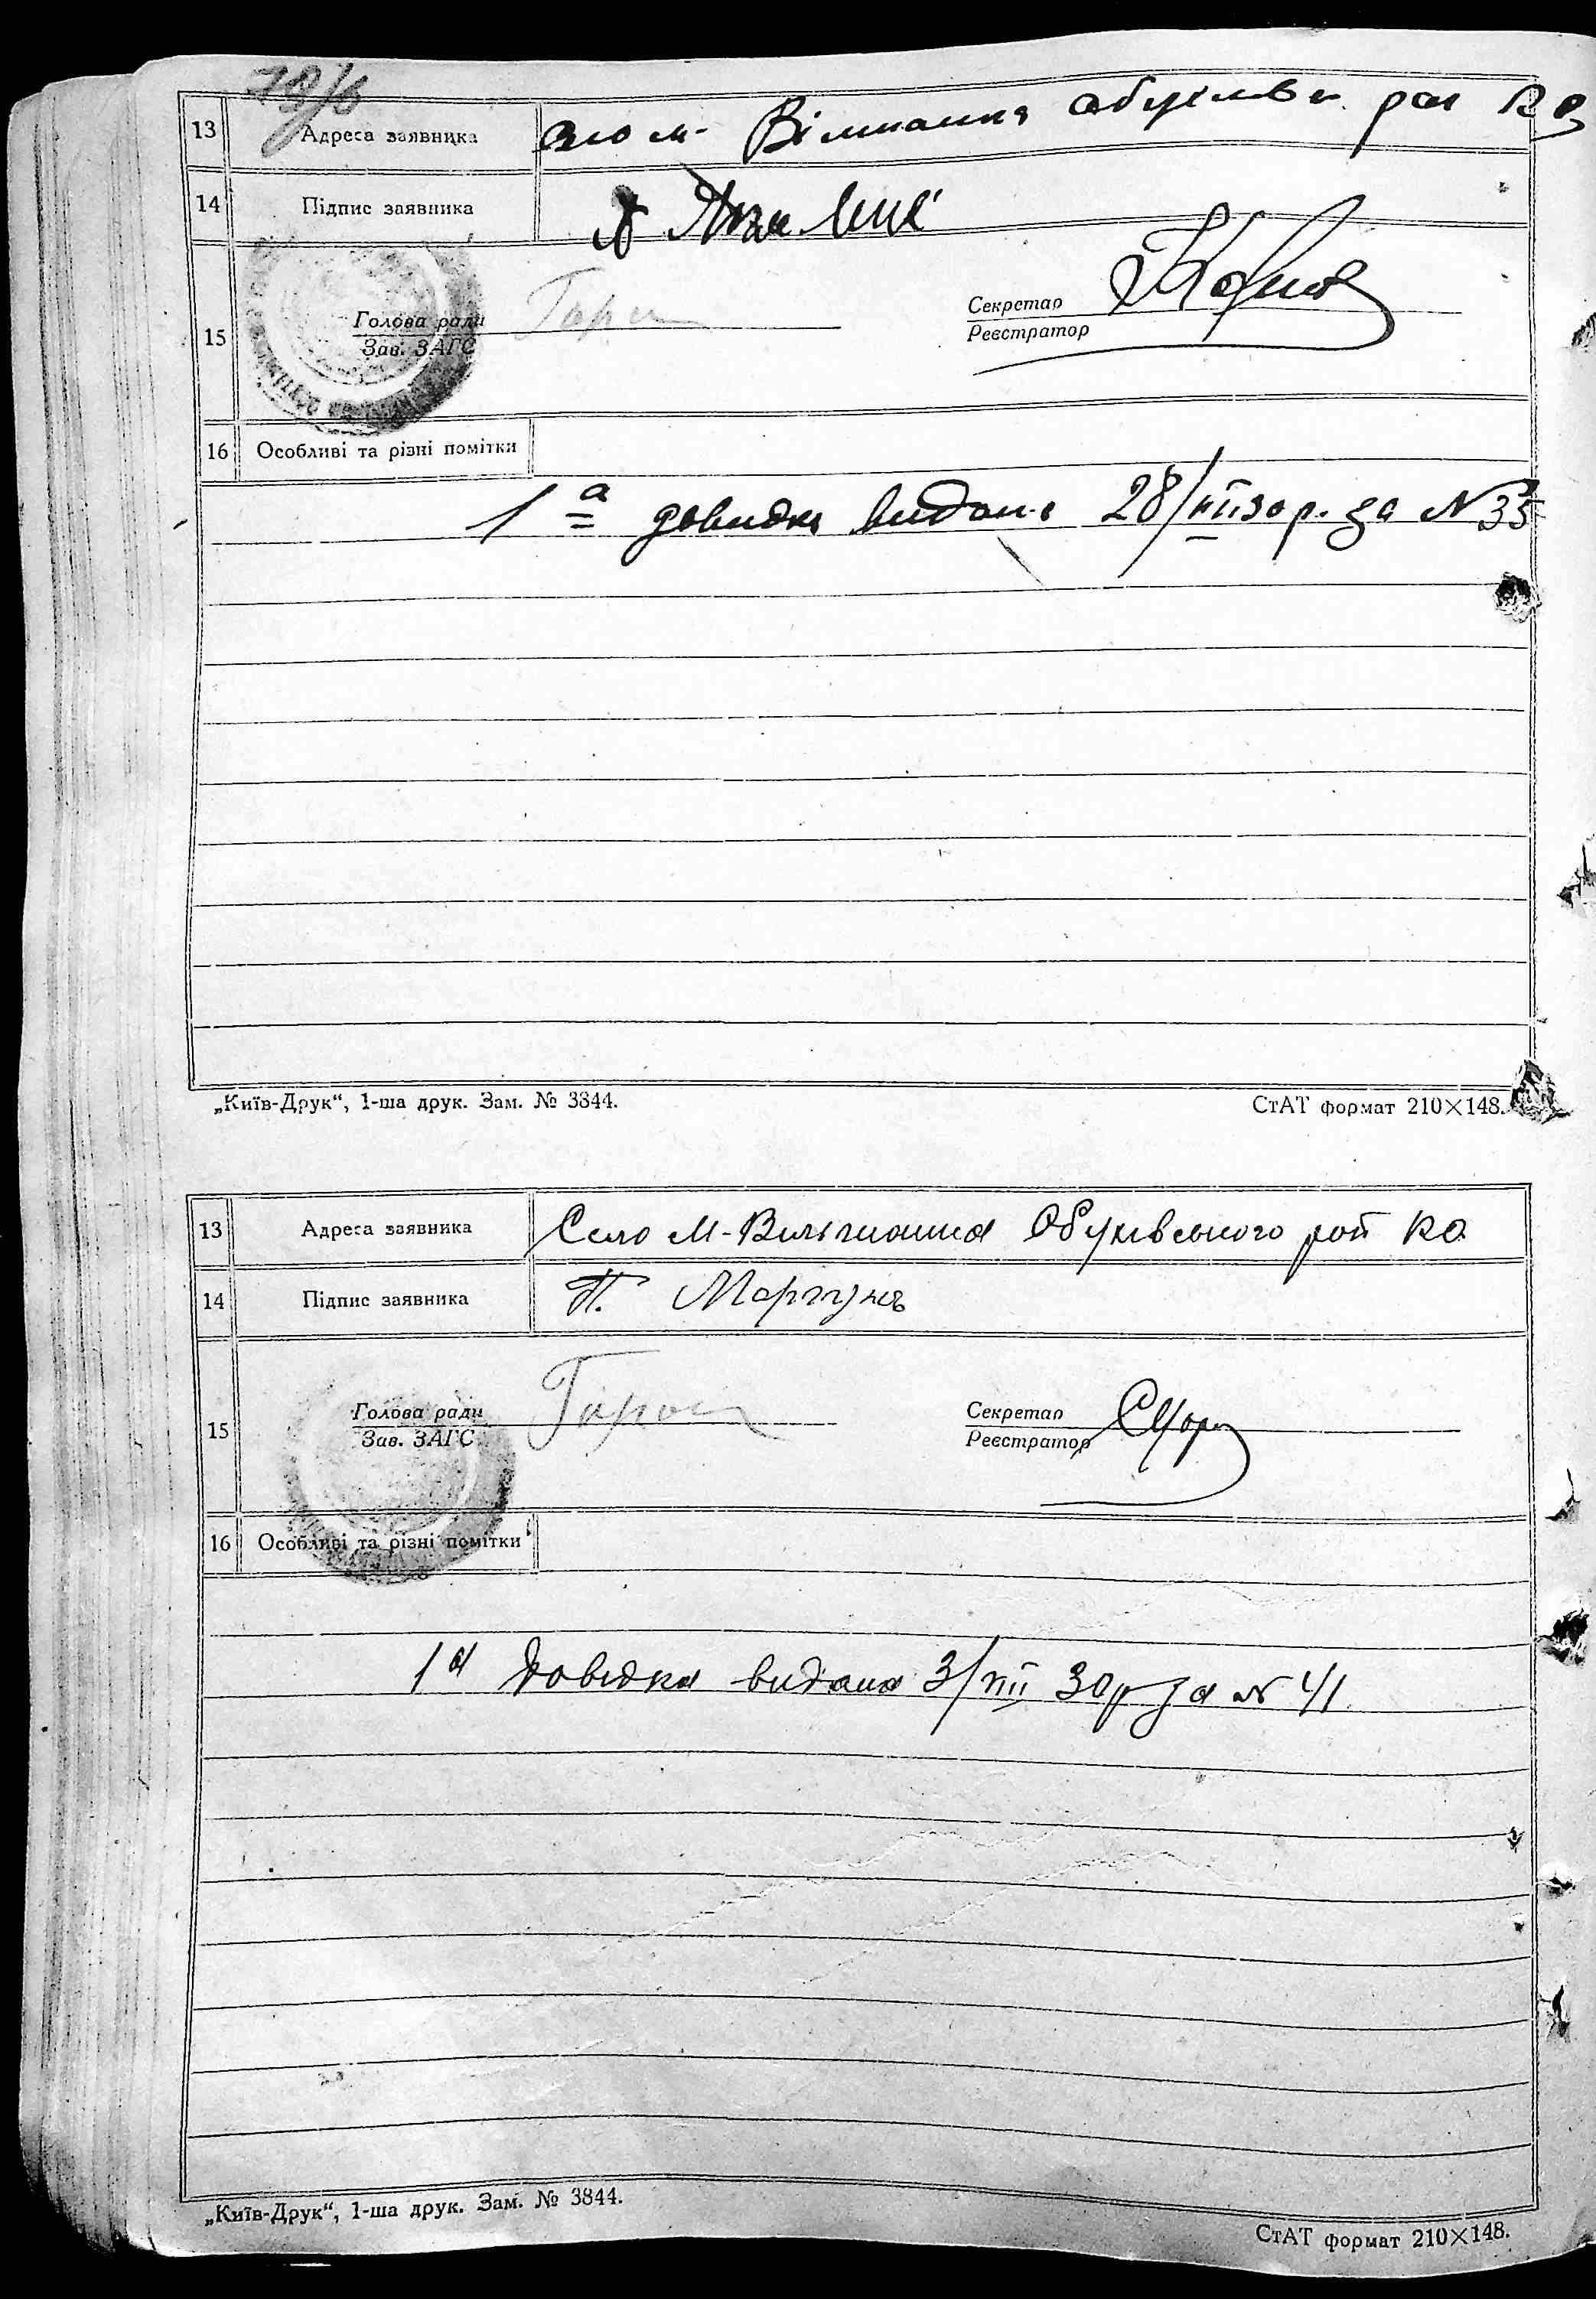 13 Адреса заявника м. Вільшанка рай
14 Підпис заявника
15 Голова ради Зав. ЗАГС Секретар Реєстратор
16 Особливі та різні помітки
1а довидка видана 28/VII 30 р. за № 35
„Київ-Друк“, 1-ша друк. Зам. № 3844. СтАТ формат 210×148.
13 Адреса заявника Село М-Вильшанка Обухівського рай КО
14 Підпис заявника П. Моргун
15 Голова ради Зав. ЗАГС Секретар Реєстратор
16 Особливі та різні помітки
1а Довідка видана 3/VIII 30р за № 41
„Київ-Друк“, 1-ша друк. Зам. № 3844.
СтАТ формат 210×148.